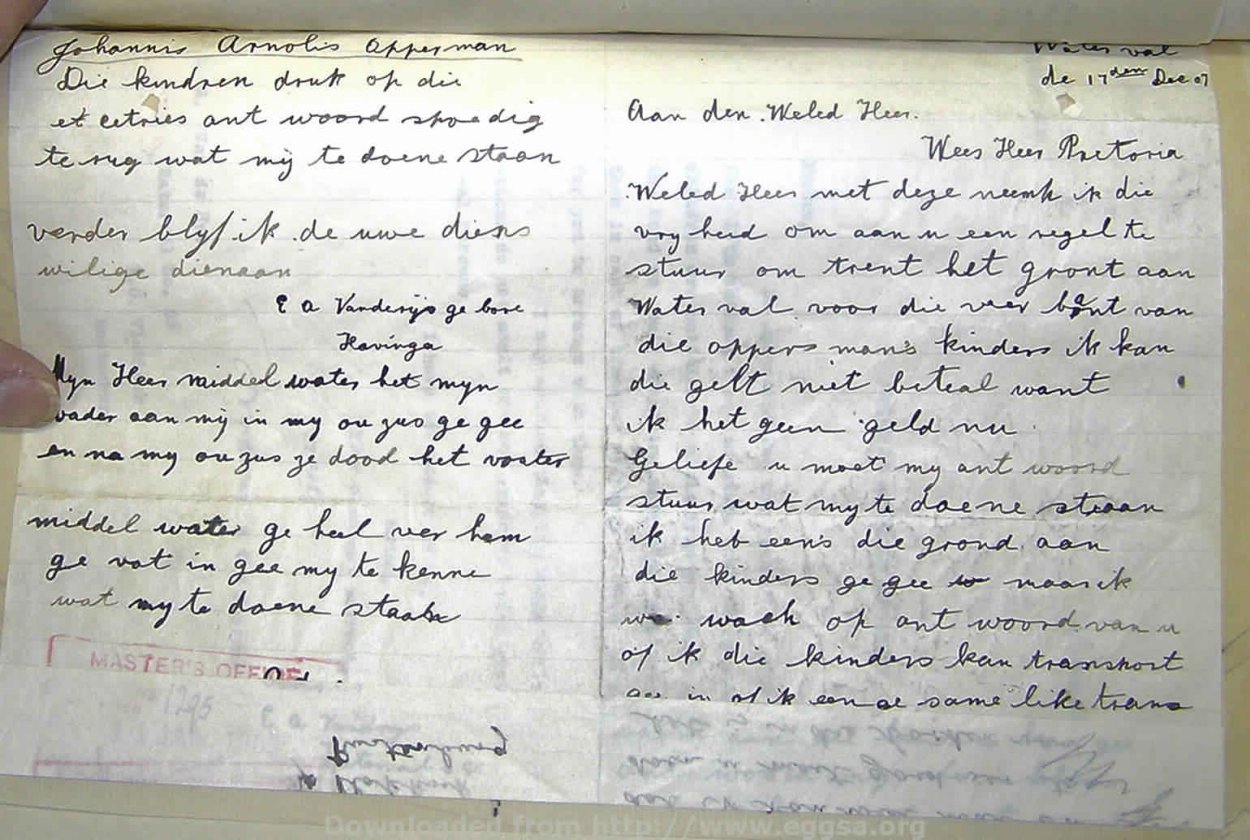 Johannis Arnolis Opperman
Die kindren druk op die
et cetries ant woord spoedig
te rug wat mij te doene staan
verder blyf ik de uwe diens
wilige dienaar
E a Vanderijs ge bore
Havinga
Myn Heer middel water het myn
vader aan mij in my ou zus ge gee
en na my ou zus ze dood het vaater
middel water ge heel ver ham
ge vat in gee my te kenne
wat my te doene staan
MASTER'S OFFICE
1295
Water val
de 17den Dec 07
Aan den Weled Heer.
Wees Heer Pretoria
Weled Heer met deze neemk ik die
vry heid om aan u een regel te
stuur om trent het gront aan
Water val voor die veer bont van
die oppers man's kinders ik kan
die gelt niet beteal want
ik het geen geld nu
Geliefe u moet my ant woord
stuur wat my te doene staan
ik heb eens die grond aan
die kinders ge gee maar ik
wach op ant woord van u
of ik die kinders kan transport
gee in of ik een ge same like trans
Downloaded from http://www.eggsa.org